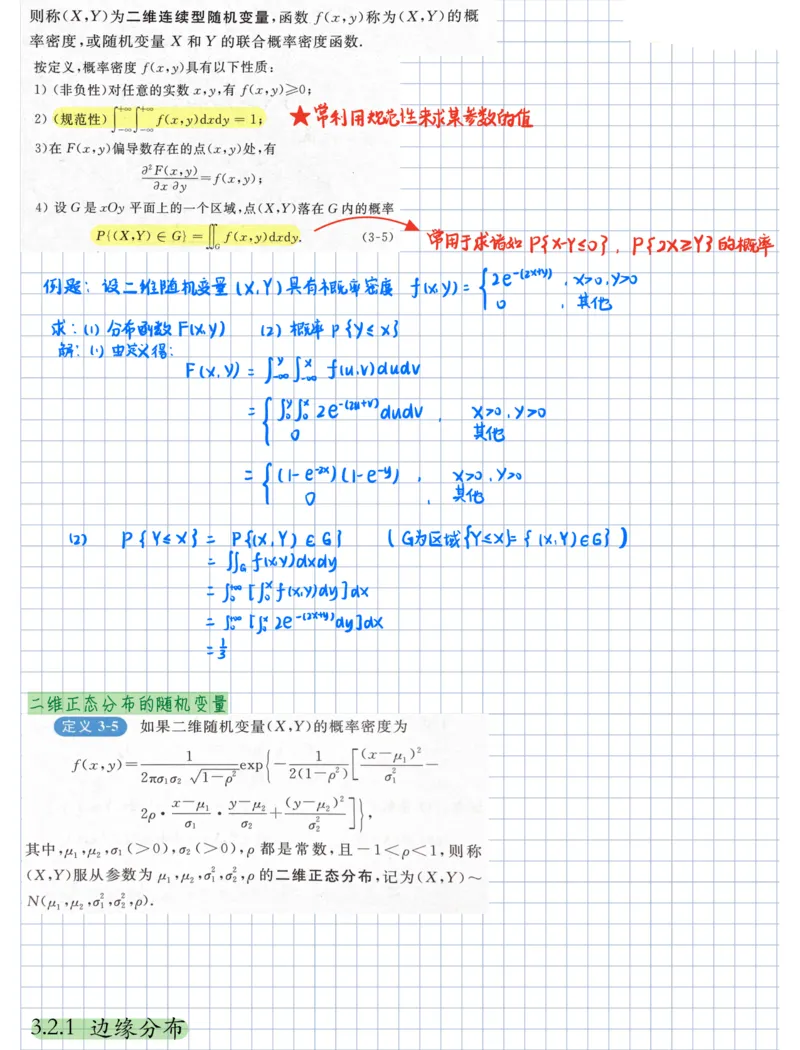 则称(X,Y)为二维连续型随机变量,函数 f(x,y)称为(X,Y)的概
率密度,或随机变量 X 和 Y 的联合概率密度函数.
按定义,概率密度 f(x,y)具有以下性质:
1) (非负性)对任意的实数 x,y,有 f(x,y)≥0;
2) (规范性)∫_{-∞}^{+∞}∫_{-∞}^{+∞} f(x,y)dxdy = 1; ★常利用规范性来求某参数的值
3)在 F(x,y)偏导数存在的点(x,y)处,有
∂²F(x,y)/∂x ∂y = f(x,y);
4) 设 G 是 xOy 平面上的一个区域,点(X,Y)落在 G 内的概率
P{(X,Y) ∈ G} = ∬_G f(x,y)dxdy. (3-5) 常用于求诸如 P{X-Y≤0}, P{2X≥Y}的概率
例题: 设二维随机变量(X,Y)具有概率密度 f(x,y) = { 2e^{-(2x+y)}, x>0,y>0
0, 其他
求: (1) 分布函数 F(x,y) (2) 概率 P{Y≤X}
解: (1) 由定义得:
F(x,y) = ∫_{-∞}^{y}∫_{-∞}^{x} f(u,v)dudv
= { ∫_0^y∫_0^x 2e^{-(2u+v)}dudv, x>0,y>0
0 其他
= { (1-e^{-2x})(1-e^{-y}), x>0,y>0
0, 其他
(2) P{Y≤X} = P{(X,Y)∈G} (G为区域{Y≤X}={(X,Y)∈G})
= ∬_G f(x,y)dxdy
= ∫_0^{+∞}[∫_0^x f(x,y)dy]dx
= ∫_0^{+∞}[∫_0^x 2e^{-(2x+y)}dy]dx
= 1/3
二维正态分布的随机变量
定义 3-5 如果二维随机变量(X,Y)的概率密度为
f(x,y) = 1/(2πσ₁σ₂ √(1-ρ²)) exp{ -1/(2(1-ρ²)) [ (x-μ₁)²/σ₁² -
2ρ · (x-μ₁)/σ₁ · (y-μ₂)/σ₂ + (y-μ₂)²/σ₂² ] },
其中,μ₁,μ₂,σ₁(>0),σ₂(>0),ρ 都是常数,且 -1<ρ<1,则称
(X,Y)服从参数为 μ₁,μ₂,σ₁²,σ₂²,ρ 的二维正态分布,记为(X,Y)~
N(μ₁,μ₂,σ₁²,σ₂²,ρ).
3.2.1 边缘分布